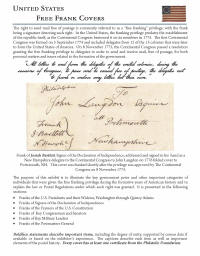 UNITED STATES
FREE FRANK COVERS
The right to send mail free of postage is commonly referred to as a "free franking" privilege; with the frank
being a signature denoting such right. In the United States, the franking privilege predates the establishment
of the republic itself, as the Continental Congress bestowed it on its members in 1775. The first Continental
Congress was formed on 5 September 1774 and included delegates from 12 of the 13 colonies that were later
to form the United States of America. On 8 November 1775, the Continental Congress passed a resolution
granting the free franking privilege to delegates in order to send and receive mail, free of postage, for both
personal matters and issues related to the formation of the government.
All letters to and from the delegates of the united colonies, during the
sessions of Congress, to pass and be carried free of postage, the delegates not
to frank or enclose any letters but their own.
Philadelphia
To
John Langdon Esquire
Portsmouth
Newhampshire
Frank of Josiah Bartlett, Signer of the Declaration of Independence, addressed and signed in his hand as a
New Hampshire delegate to the Continental Congress to John Langdon on
Portsmouth, NH. That cover was docketed shortly after the privilege was approved by The Continental
Congress on 8 November 1775.
The purpose of this exhibit is to illustrate the key government posts and other important categories of
individuals that were given the free franking privilege during the formative years of American history and to
explain the law or Postal Regulations under which such right was granted. It is presented in the following
sections:
• Franks of the U.S. Presidents and their Widows, Washington through Quincy Adams
• Franks of Signers of the Declaration of Independence
• Franks of the Framers of the U.S. Constitution
• Franks of Key Congressmen and Senators
• Franks of Key Military Leaders
• Franks of the Postmasters General